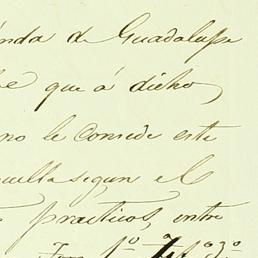 nda de Guadalupe
e que á dicho,
no le Concede este
uella segun el
practicos, entre